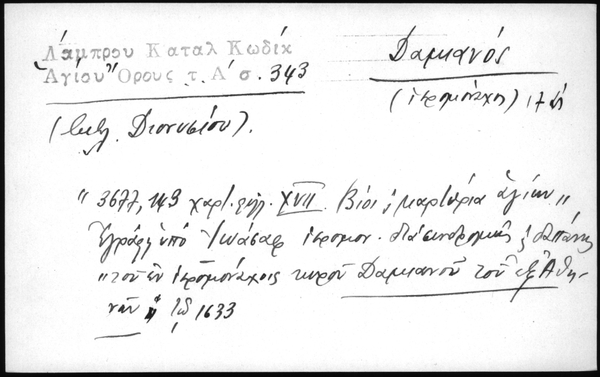 Λάμπρου Καταλ Κωδίκ
Ἁγίου Ὄρους τ. Α΄ σ. 343
Δαμιανός
(ἱερομόναχος) 17
( Διονυσίου).
" 3677, 143 χαρτ. XVII. Βίοι κ μαρτύρια ἁγίων "
Ἐγράφη ὑπὸ Ἰωάσαφ ἱερομον. διὰ συνδρομῆς κ δαπάνης
" τοῦ ἐν ἱερομονάχοις κυροῦ Δαμιανοῦ τοῦ ἐξ Ἀθη-
νῶν 1633